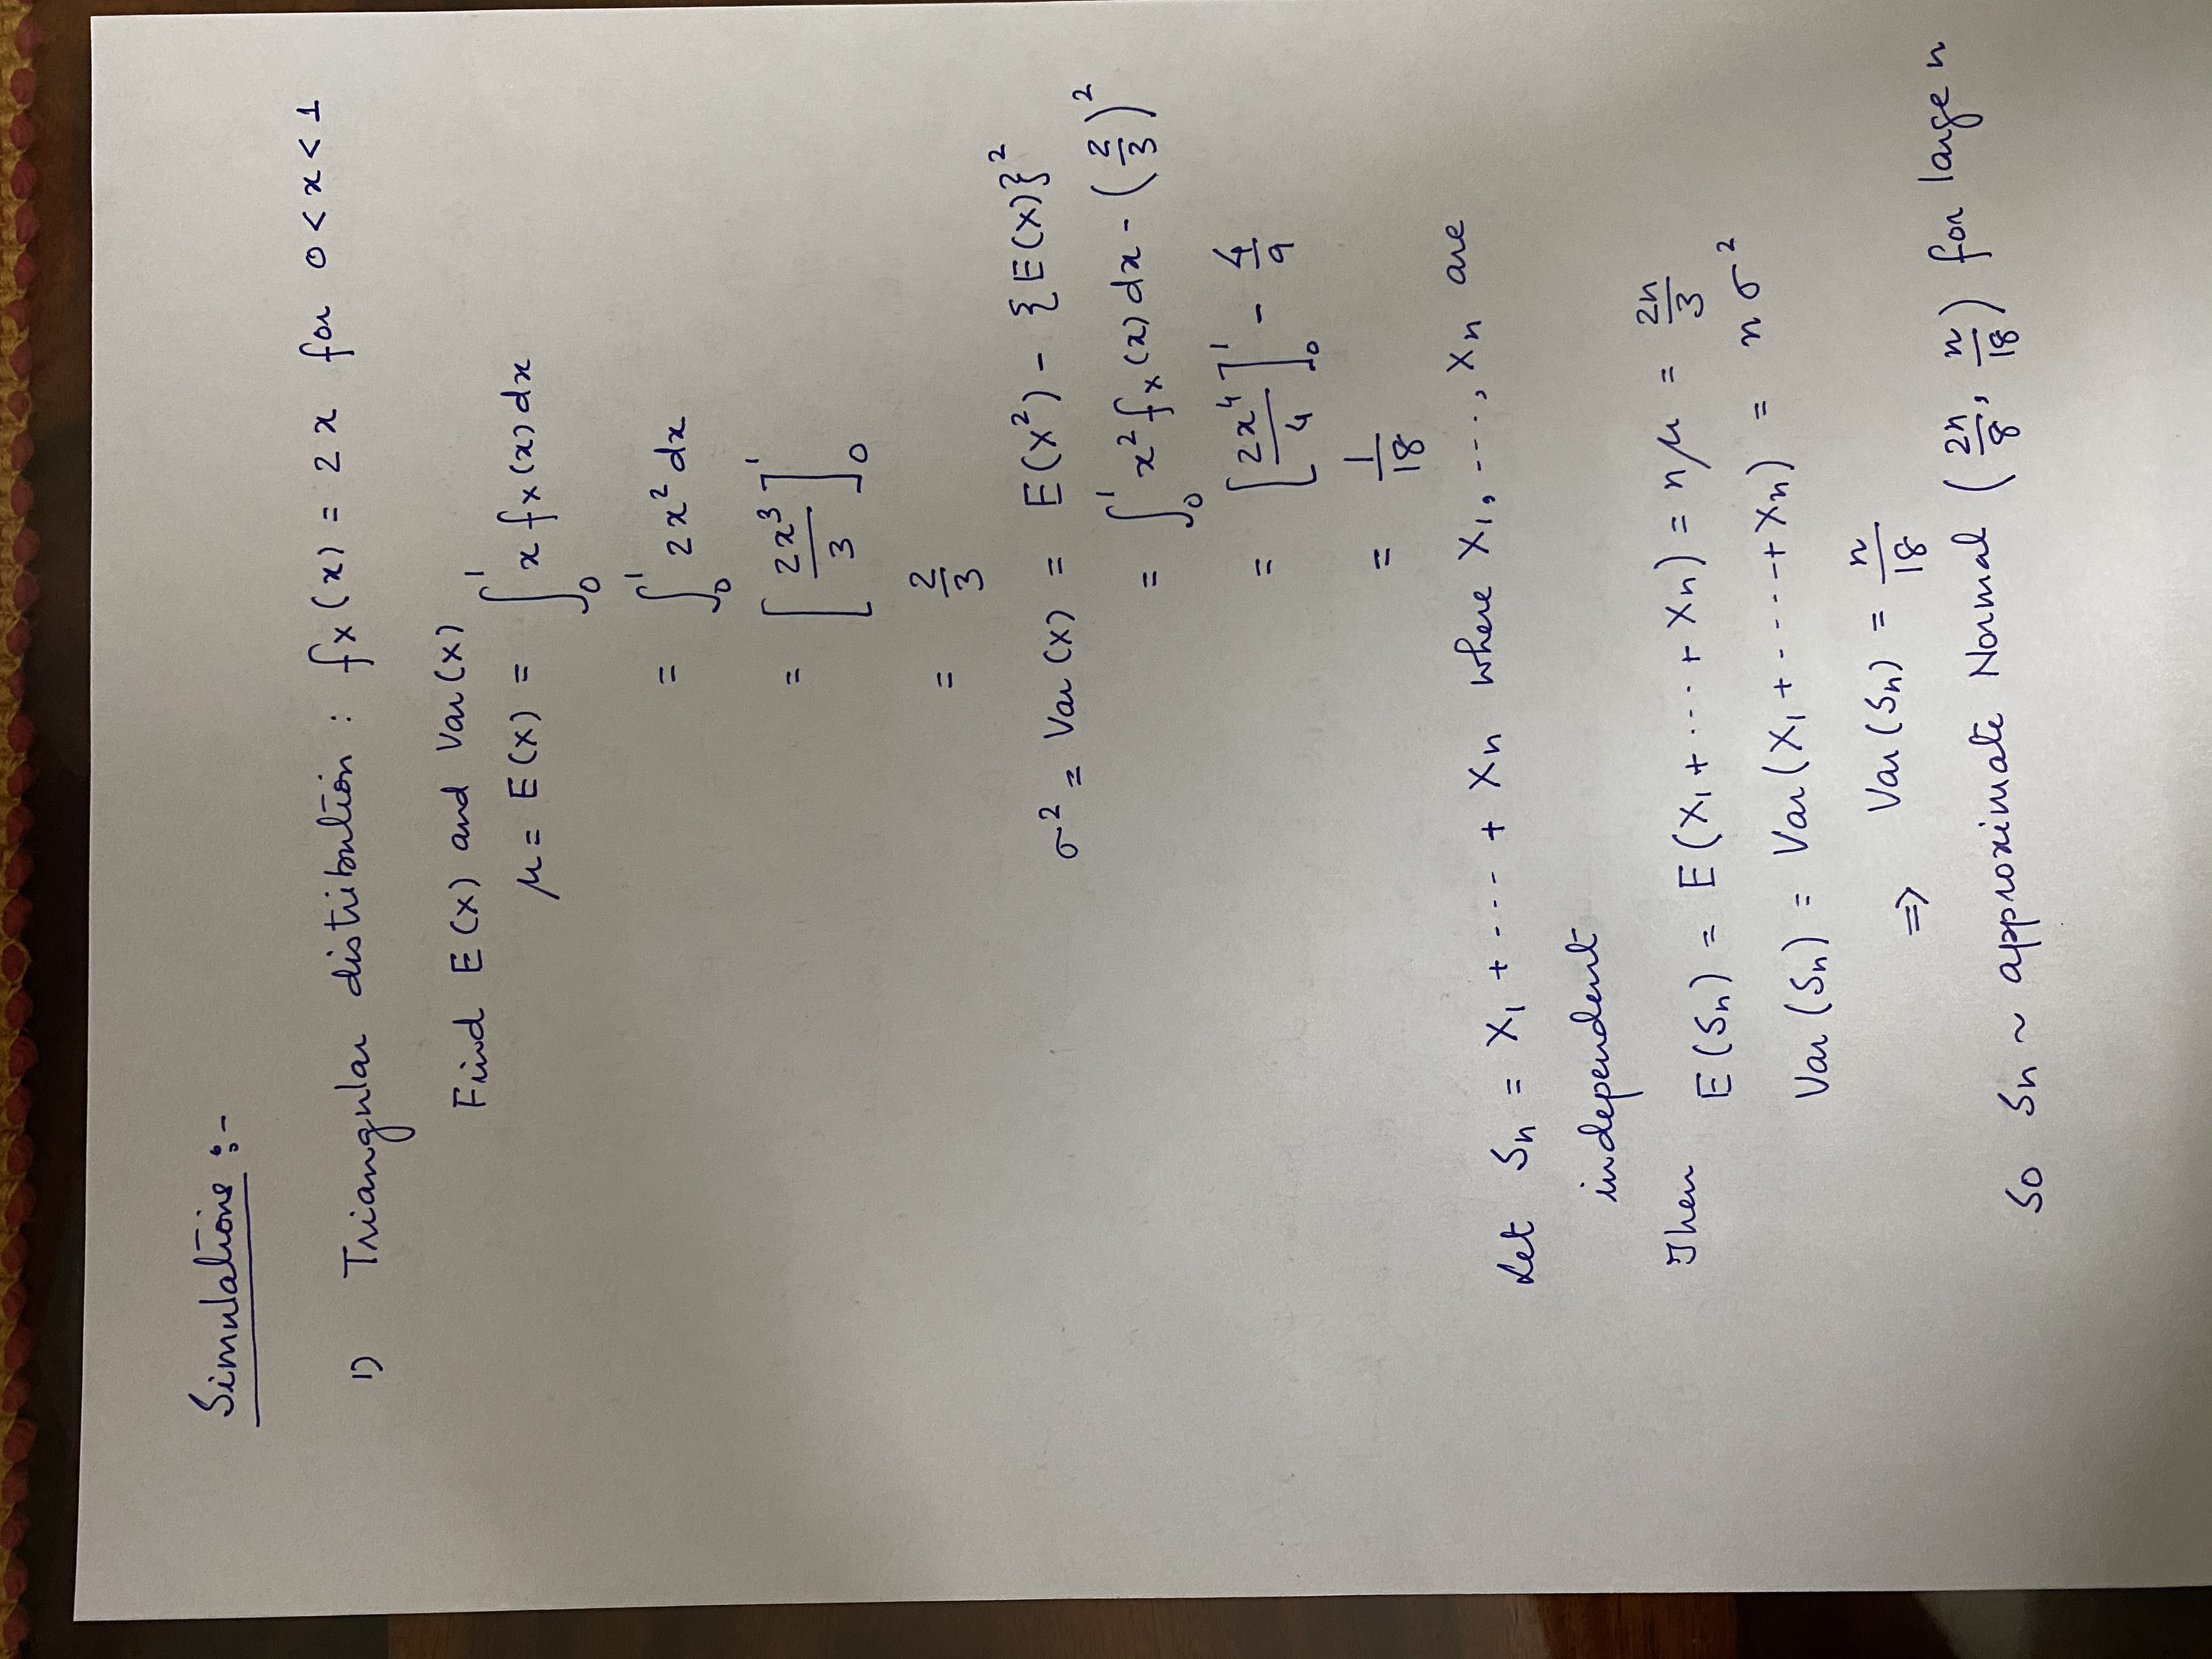 Simulations :-
1) Triangular distribution : fₓ(x) = 2x for 0 < x < 1
Find E(X) and Var(X)
μ = E(X) = ∫₀¹ x fₓ(x) dx
= ∫₀¹ 2x² dx
= [2x³/3]₀¹
= 2/3
σ² = Var(X) = E(X²) - {E(X)}²
= ∫₀¹ x² fₓ(x) dx - (2/3)²
= [2x⁴/4]₀¹ - 4/9
= 1/18
Let Sₙ = X₁ + --- + Xₙ where X₁, ---, Xₙ are
independent
Then
E(Sₙ) = E(X₁ + --- + Xₙ) = nμ = 2n/3
Var(Sₙ) = Var(X₁ + ---- + Xₙ) = nσ²
⇒ Var(Sₙ) = n/18
So Sₙ ~ approximate Normal (2n/8, n/18) for large n